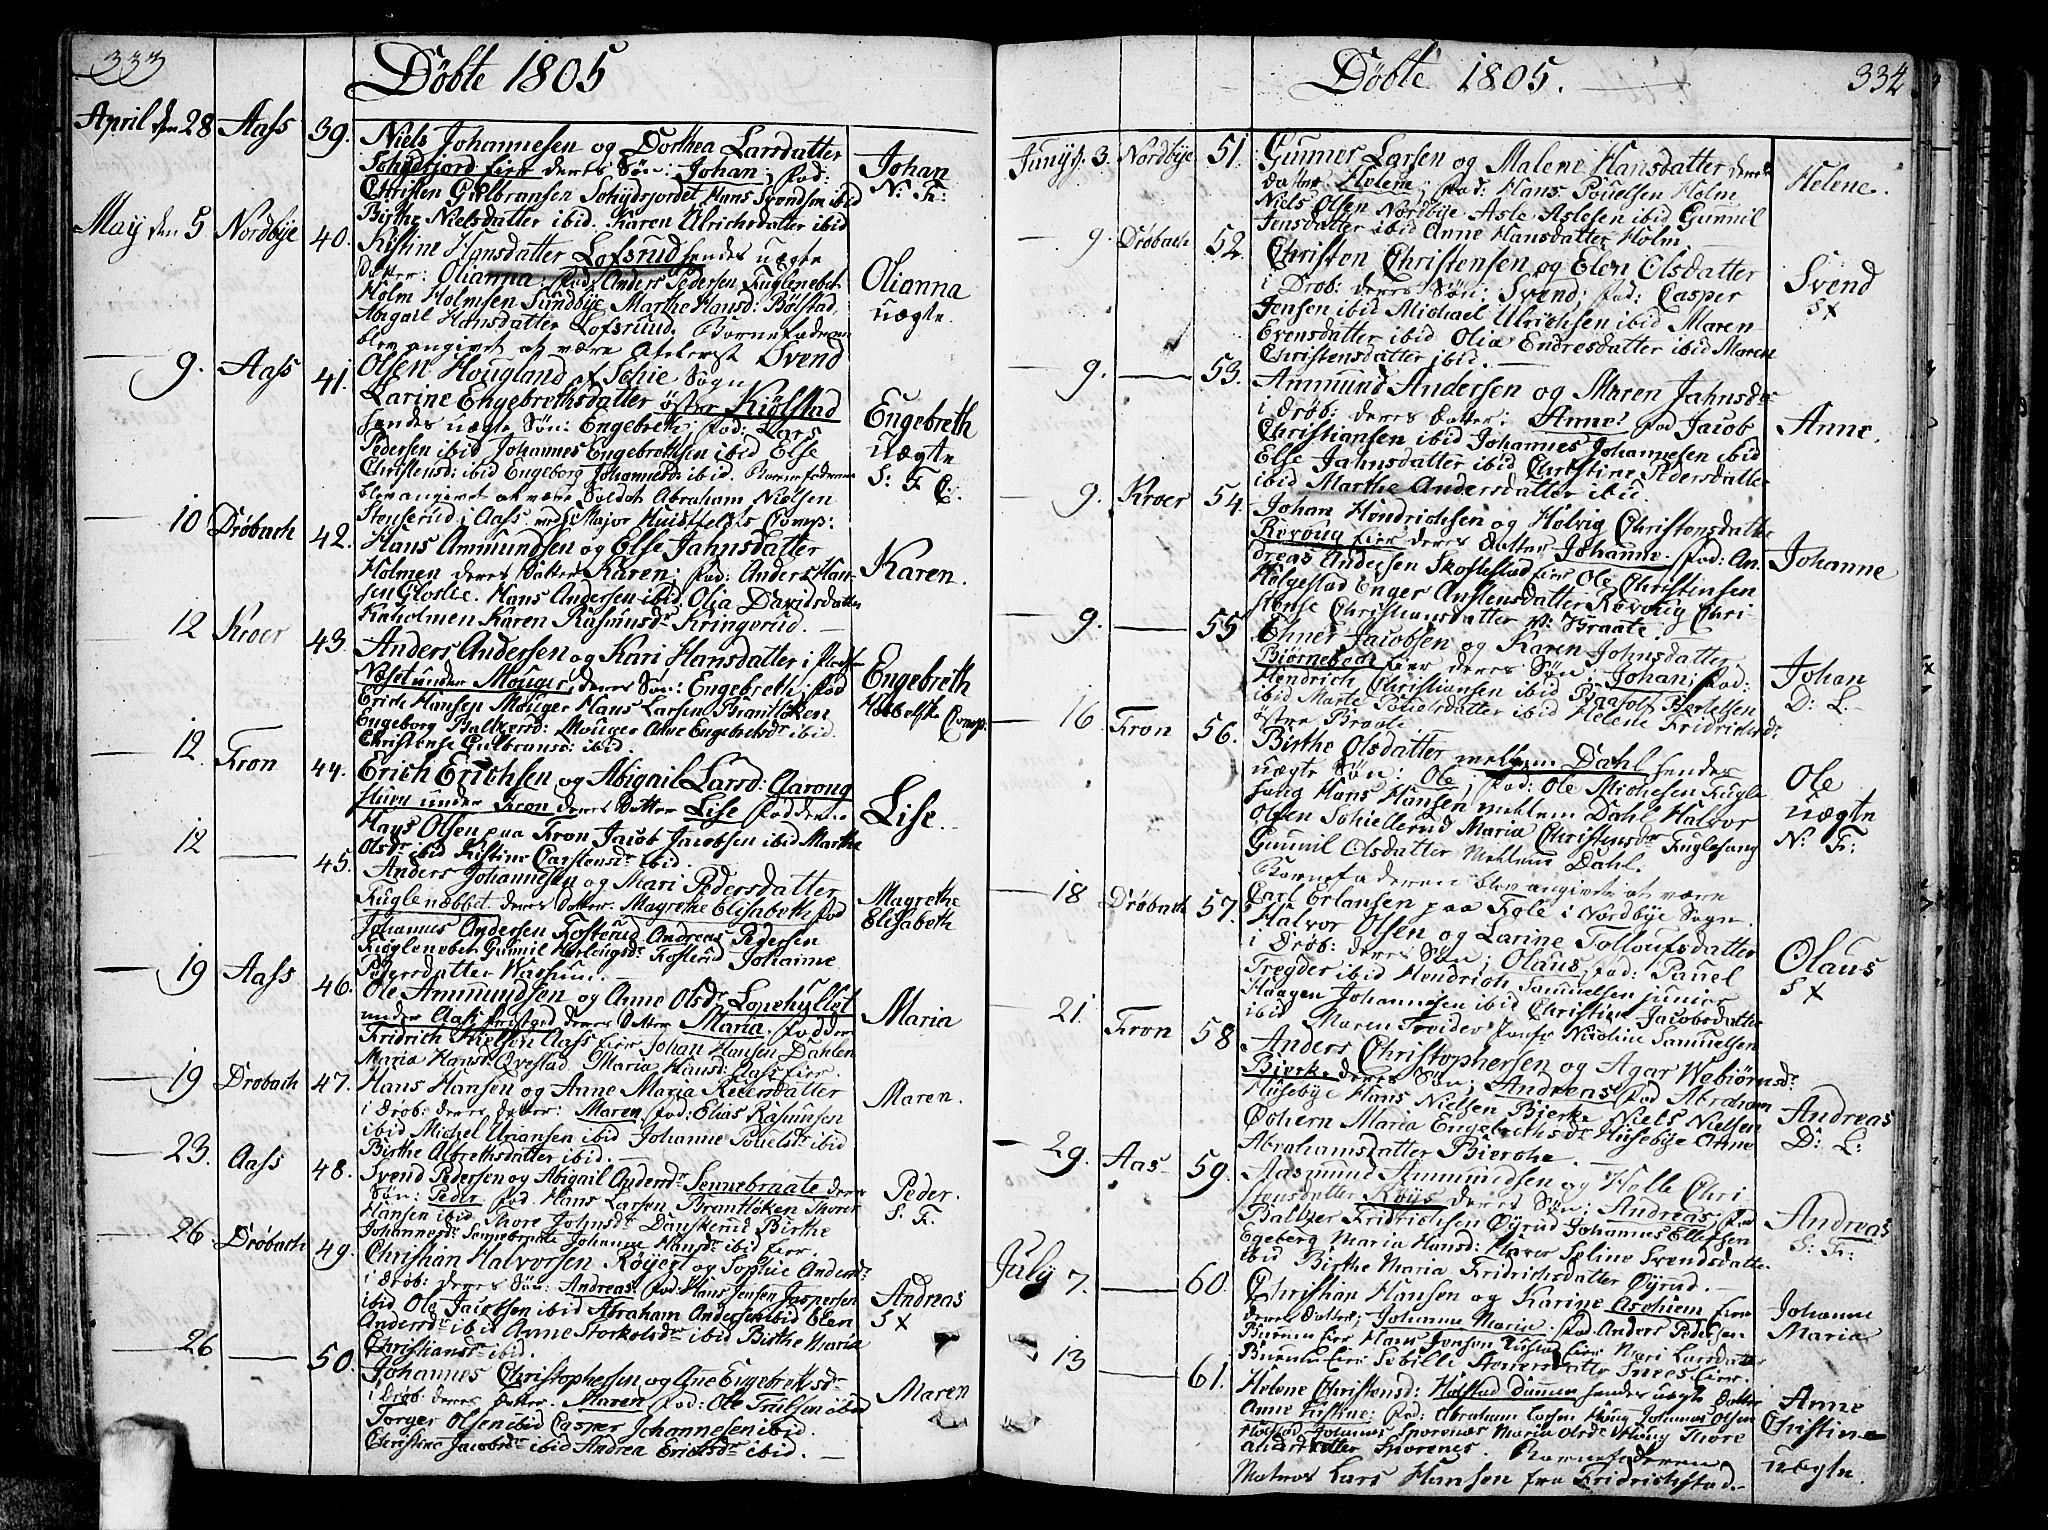 333
Döbte 1805
April den 28 Aass 39. Niels Johannesen og Dorthea Larsdatter
Schydsjord Eier deres Søn: Johan; fad:
Christen Gulbransen Schydsjordet Hans Svendsen ibid
Birthe Nielsdatter ibid. Karen Ulrichsdatter ibid
Johan
N: F:
May den 5 Nordbye 40. Kistine Hansdatter Lofsrud hendes uægte
datter: Olianna; fad: Anders Pedersen Fuglenebet
Holm Holmsen Sundbye Marthe Hansd: Bölstad
Abigail Hansdatter Lofsrund. Barnefaderen
blev angivet at være Svend
Olsen Hougland af Schie Sogn
Olianna
uægte.
9. Aass 41. Larine Engebrethsdatter östre Kiölstad
hendes uægte Søn: Engebreth; fad: Lars
Pedersen ibid Johannes Engebrethsen ibid Else
Christensd: ibid Engeborg Johannesd: ibid. Barnefaderen
blev angivet at være Soldat Abraham Nielsen
Stenserud i Aass ved Major Huidtfeldts Comp:
Engebreth
uægte
S: F. C:
10 Dröbach 42. Hans Ammundsen og Else Jahnsdatter
Holmen deres Datter Karen; fad: Anders Han-
sen Gloslie. Hans Andersen ibid Olia Davidsdatter
Kaholmen Karen Rasmusdr Kringerud.
Karen.
12 Kroer 43. Anders Andersen og Kari Hansdatter i Pladsen
Næset under Mouger, deres Søn: Engebreth; fad
Erich Hansen Mouger Hans Larsen Brantløken
Engeborg Baltzersd: Mouger Anne Engebretsdr ibid.
Christense Gulbransd: ibid.
Engebreth
Comp:
12. Kron 44. Erich Erichsen og Abigail Larsd:
under Kron deres Datter Lise fadder:
Hans Olsen paa Kron Jacob Jacobsen ibid Marthe
Olsdr ibid Kistine Carstensdr ibid.
Lise.
12 — 45. Anders Johannesen og Mari Pedersdatter
Fuglenæbbet deres Datter. Magrethe Elisabeth fad
Johannes Andersen Fosterud Andreas Pedersen
Fuglenebet Gunnil Fosterud Johanne
Pedersdatter
Magrethe
Elisabeth
19 Aass 46. Ole Ammundsen og Anne Olsdr
under Aas deres Datter Maria. fadder
Fridrich Nielsen Aass Eier Johan Hansen Dahlen
Maria Hansdr Qvestad Maria Hansd: Aass Eier.
Maria
19 Drobach 47. Hans Hansen og Anne Maria Reiersdatter
i Dröb: deres Datter: Maren, fad: Elias Rasmusen
ibid Michel Uriansen ibid Johanne Pouelsdr ibid
Birthe Albrethsdatter ibid.
Maren.
23. Aass 48. Svend Pedersen og Abigail Andersdr Sennebraate deres
Søn: Peder, fad. Hans Larsen Brantløken Thorer
Hansen ibid Thore Johnsdr Danskerud Birthe
Johannesdr Sennebraate Johanne Hansdr ibid Eier.
Peder.
S. F.
26. Dröbach 49. Christian Halvorsen Röyer og Sophie Andersdr
i Dröb: deres Søn: Andreas: fad: Hans Jensen Jaspersen
ibid Ole Jacobsen ibid Abraham Andersen ibid Elen
Andersdr ibid Anne Storkolsdr ibid Birthe Maria
Christiansdr ibid.
Andreas
S X
26 — 50. Johannes Christophersen og Ane Engebretsdr
i Dröb: deres Datter. Maren fad: Ole Trulsen ibid
Torger Olsen ibid Casper Johannesen ibid.
Christine Jacobsdr ibid Andrea Erichsdr ibid.
Maren
Döbte 1805.
334
Juny d. 3. Nordbye 51. Gunner Larsen og Malene Hansdatter deres
datter Helene; fad: Hans Pouelsen Holm
Niels Olsen Nordbye Asle Aslesen ibid Gunnil
Jensdatter ibid Anne Hansdatter Holm
Helene.
9 Dröbach 52. Christen Christensen og Elen Olsdatter
i Dröb: deres Søn: Svend; fad: Casper
Jensen ibid Michael Ulrichsen ibid Maren
Evensdatter ibid Olia Endresdatter ibid Maren
Christensdatter ibid.
Svend
S X
9. — 53. Ammund Andersen og Maren Jahnsdr
i Dröb: deres Datter: Anne; fad Jacob
Christiansen ibid Johannes Johannesen ibid
Else Jahnsdatter ibid Christine Pedersdatter
ibid Marthe Andersdatter ibid.
Anne.
9. Kroer 54. Johan Hendrichsen og Helvig Christensdatter
Revoug Eier deres Datter Johanne. fad: An-
dreas Andersen Skoftestad Eier Ole Christensen
Holgestad Enger Anstensdatter Revoug Chri-
stense Christiansdatter V: Braate.
Johanne
9. — 55 Ehner Jacobsen og Karen Johnsdatter
Biørnebech Eier deres Søn; Johan; fad:
Hendrich Christiansen ibid Bertelsen
ibid Marte Pouelsdatter ibid Helene Fridrichsdr
östre Braate
Johan
D: L—
16 Kron 56. Birthe Olsdatter mellem Dahl hendes
uægte Søn: Ole, fad: Ole Michelsen Fugle
sang Hans Hansen mellem Dahl Halvor
Olsen Schiellerud Maria Christensdr Fuglesang
Gunnil Olsdatter Mellem Dahl.
Barnefaderen blev angivet at være
Carl Erlansen paa Fgle i Nordbye Sogn.
Ole
uægte
N: F:
18 Dröbach 57. Halvor Olsen og Larine Tolloufsdatter
i Dröb: deres Søn; Olaus, fad: Pauel
Tregder ibid Hendrich Samuelsen junior
Haagen Johannesen ibid Christine Jacobsdatter
ibid Maren Jomfr Nicoline Samuelsen
Olaus
S X
21. Kron 58 Anders Christophersen og Agar Webiørnsdr
Bierke deres Søn; Andreas fad Abraham
Husebye Hans Nielsen Bierke Niels Nielsen
Maria Engebrethsdr Husebye Anne
Abrahamsdatter Bierche.
Andreas
D: L:
29. Aas 59. Aasmund Ammundsen og Helle Chri
stensdatter Røys deres Søn; Andreas, fad
Baltzer Fridrichsen Øyrud Johannes Ellefsen
Egeberg Maria Hansd: Seline Svendsdatter
ibid Birthe Maria Fridrichsdatter Øyrud.
Andreas
S: F:
July 7. — 60. Christian Hansen og Karine Aschiem Eier
deres Datter; Johanne Maria: fad: Anders Pedersen
Burum Eier Hans Jensen Rustad Eier Mari Larsdatter
Burum Eier Sebilli Eier.
Johanne
Maria
13 — 61. Helene Christensd: Holstad hendes uægte Datter
Anne Kistine; fad: Abraham Larsen Houg Johannes Olsen
Holstad Johannes Sporenes Maria Olsdr Houg Thore
Andersdatter Sporenes. Barnefaderen
Matros Lars Hansen fra Fridrichstad.
Anne
Christine
uægte.